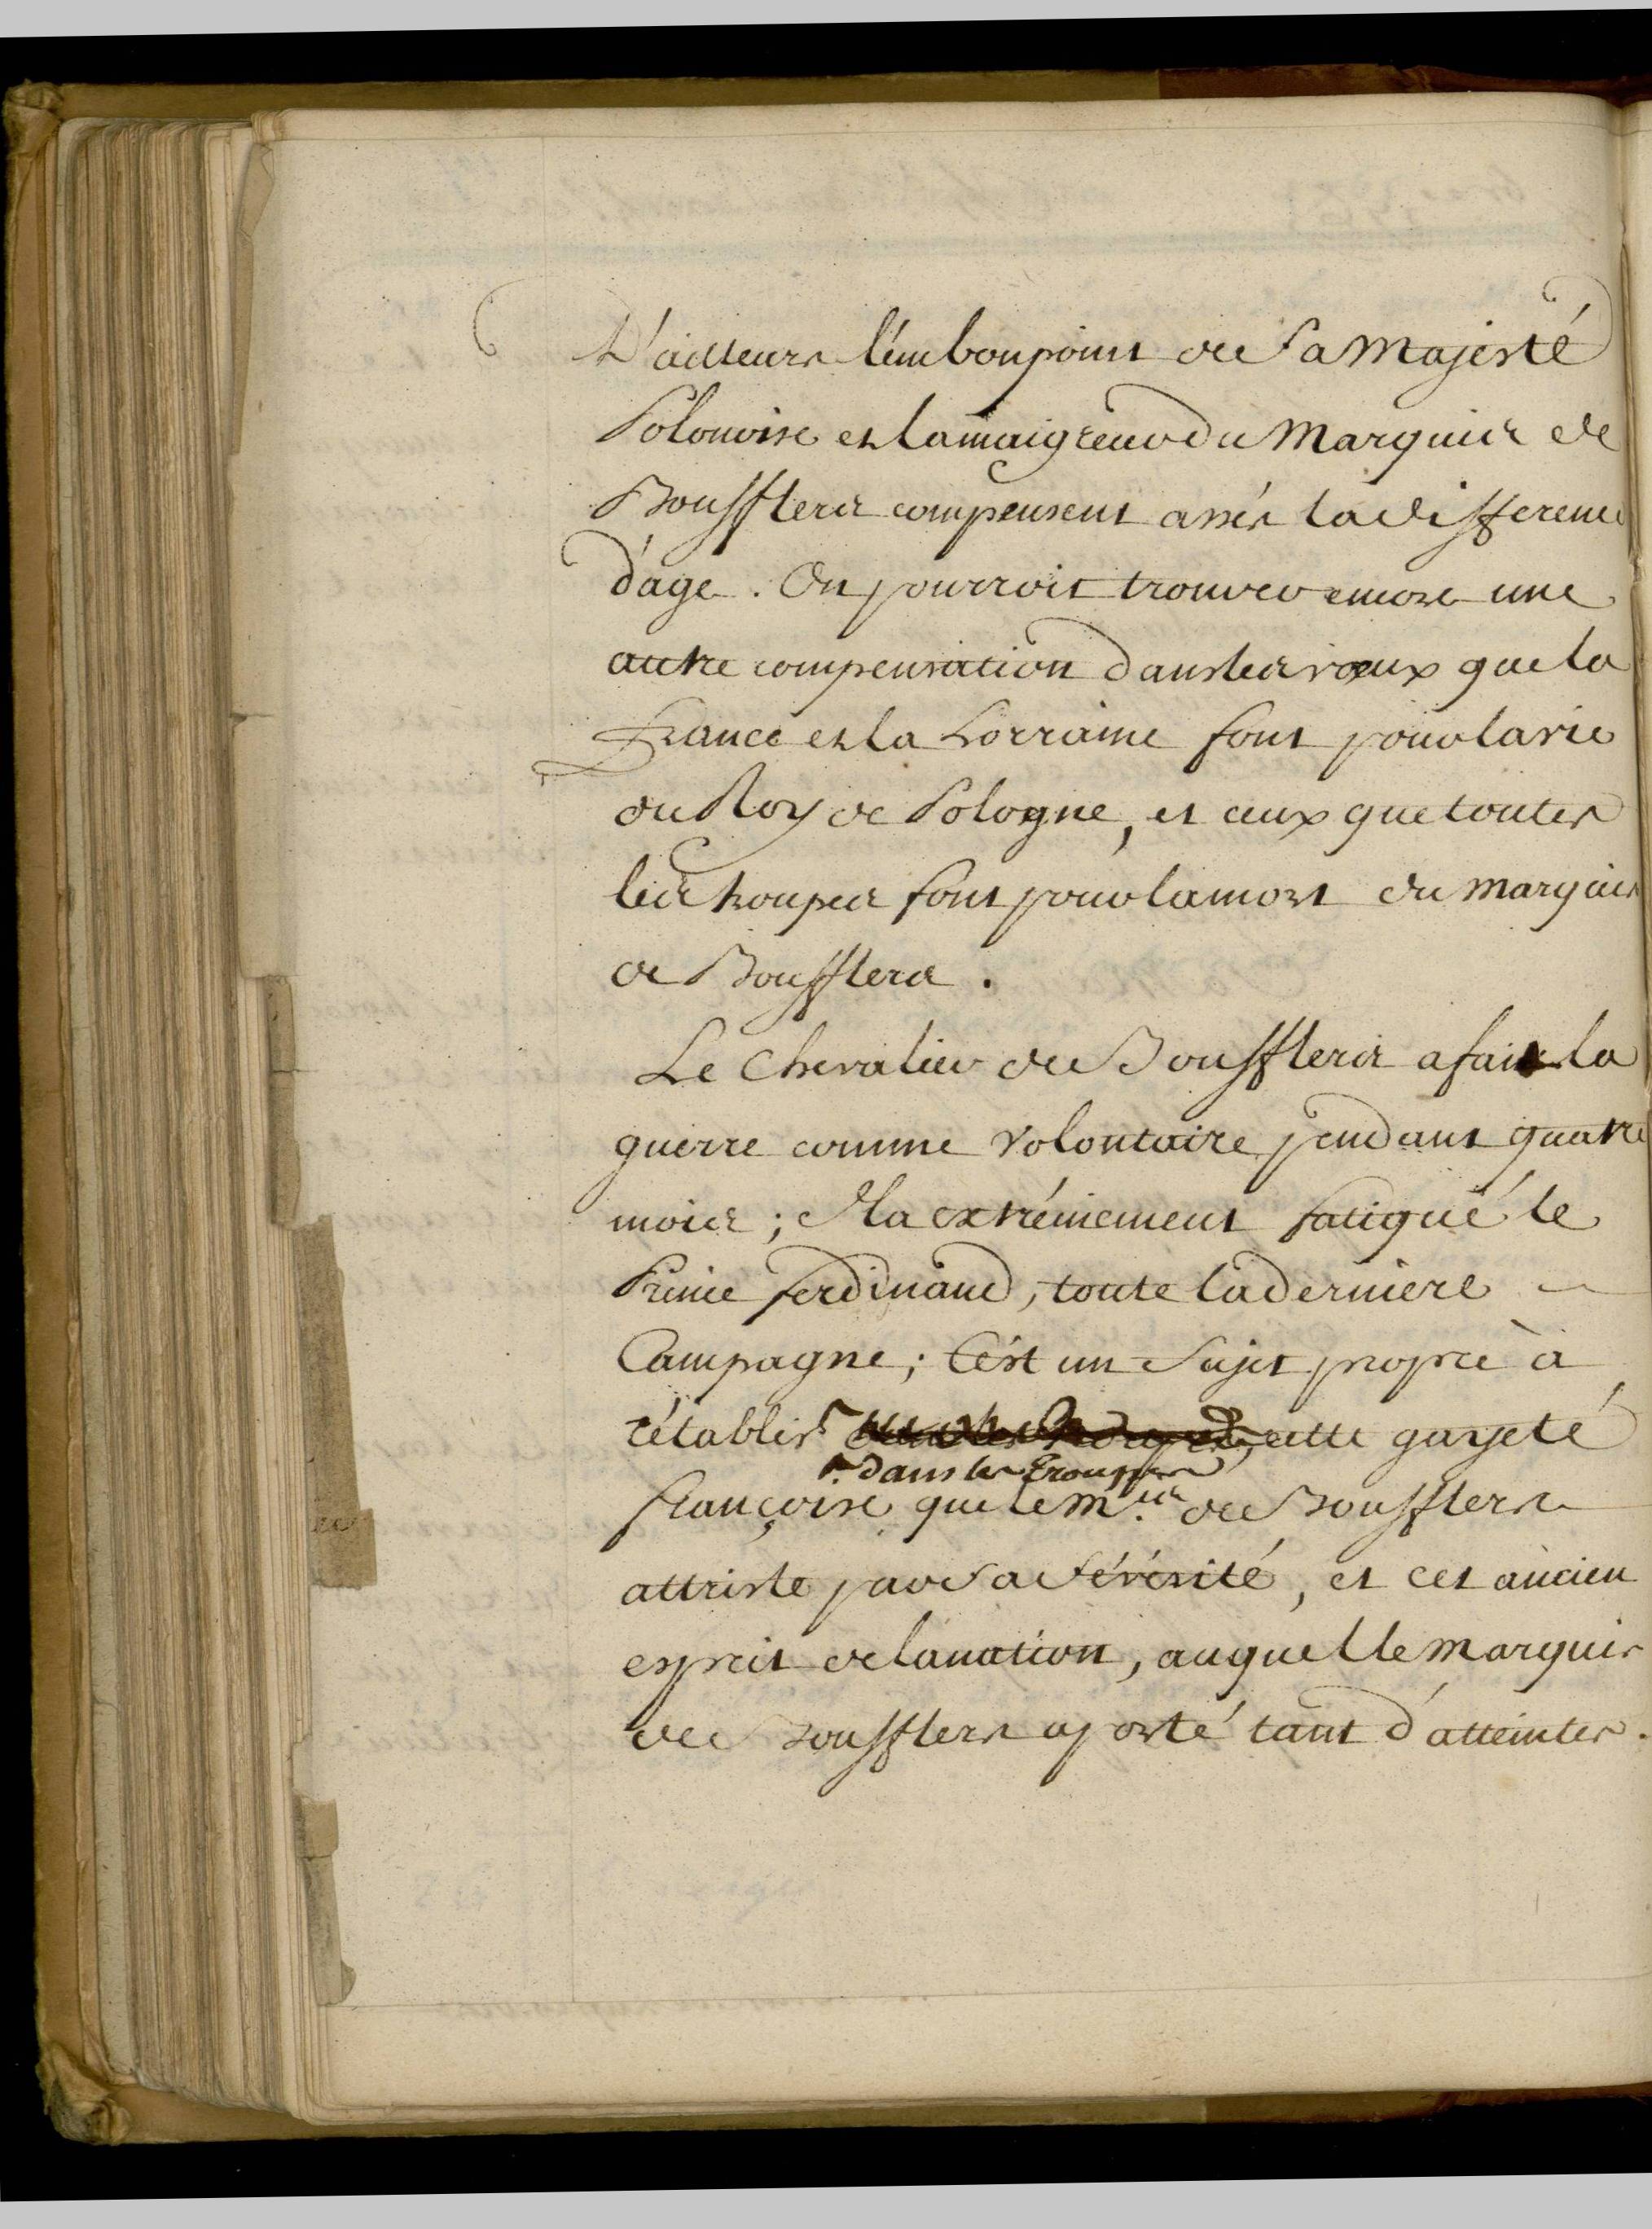 D'ailleurs l'embonpoint de Sa Majesté
Polonoise et la maigreur du Marquis de
Boufflers compensent assés la difference
d'age. On pourroit trouver encore une
autre compensation dans les vœux que la
France et la Lorraine font pour la vie
du Roy de Pologne, et ceux que toutes
les troupes font pour la mort du Marquis
de Boufflers.
Le Chevalier de Boufflers a fait la
guerre comme Volontaire pendant quatre
mois; Il a extrémement fatigué le
Prince ferdinand, toute la derniere
Campagne; C'est un Sujet propre à
rétablir cette gayeté
dans les Trouppes
françoise que le M.is de Boufflers
attriste par Sa Sévérité, et cet ancien
esprit de la nation, auquel le Marquis
de Boufflers a porté tant d'atteintes.